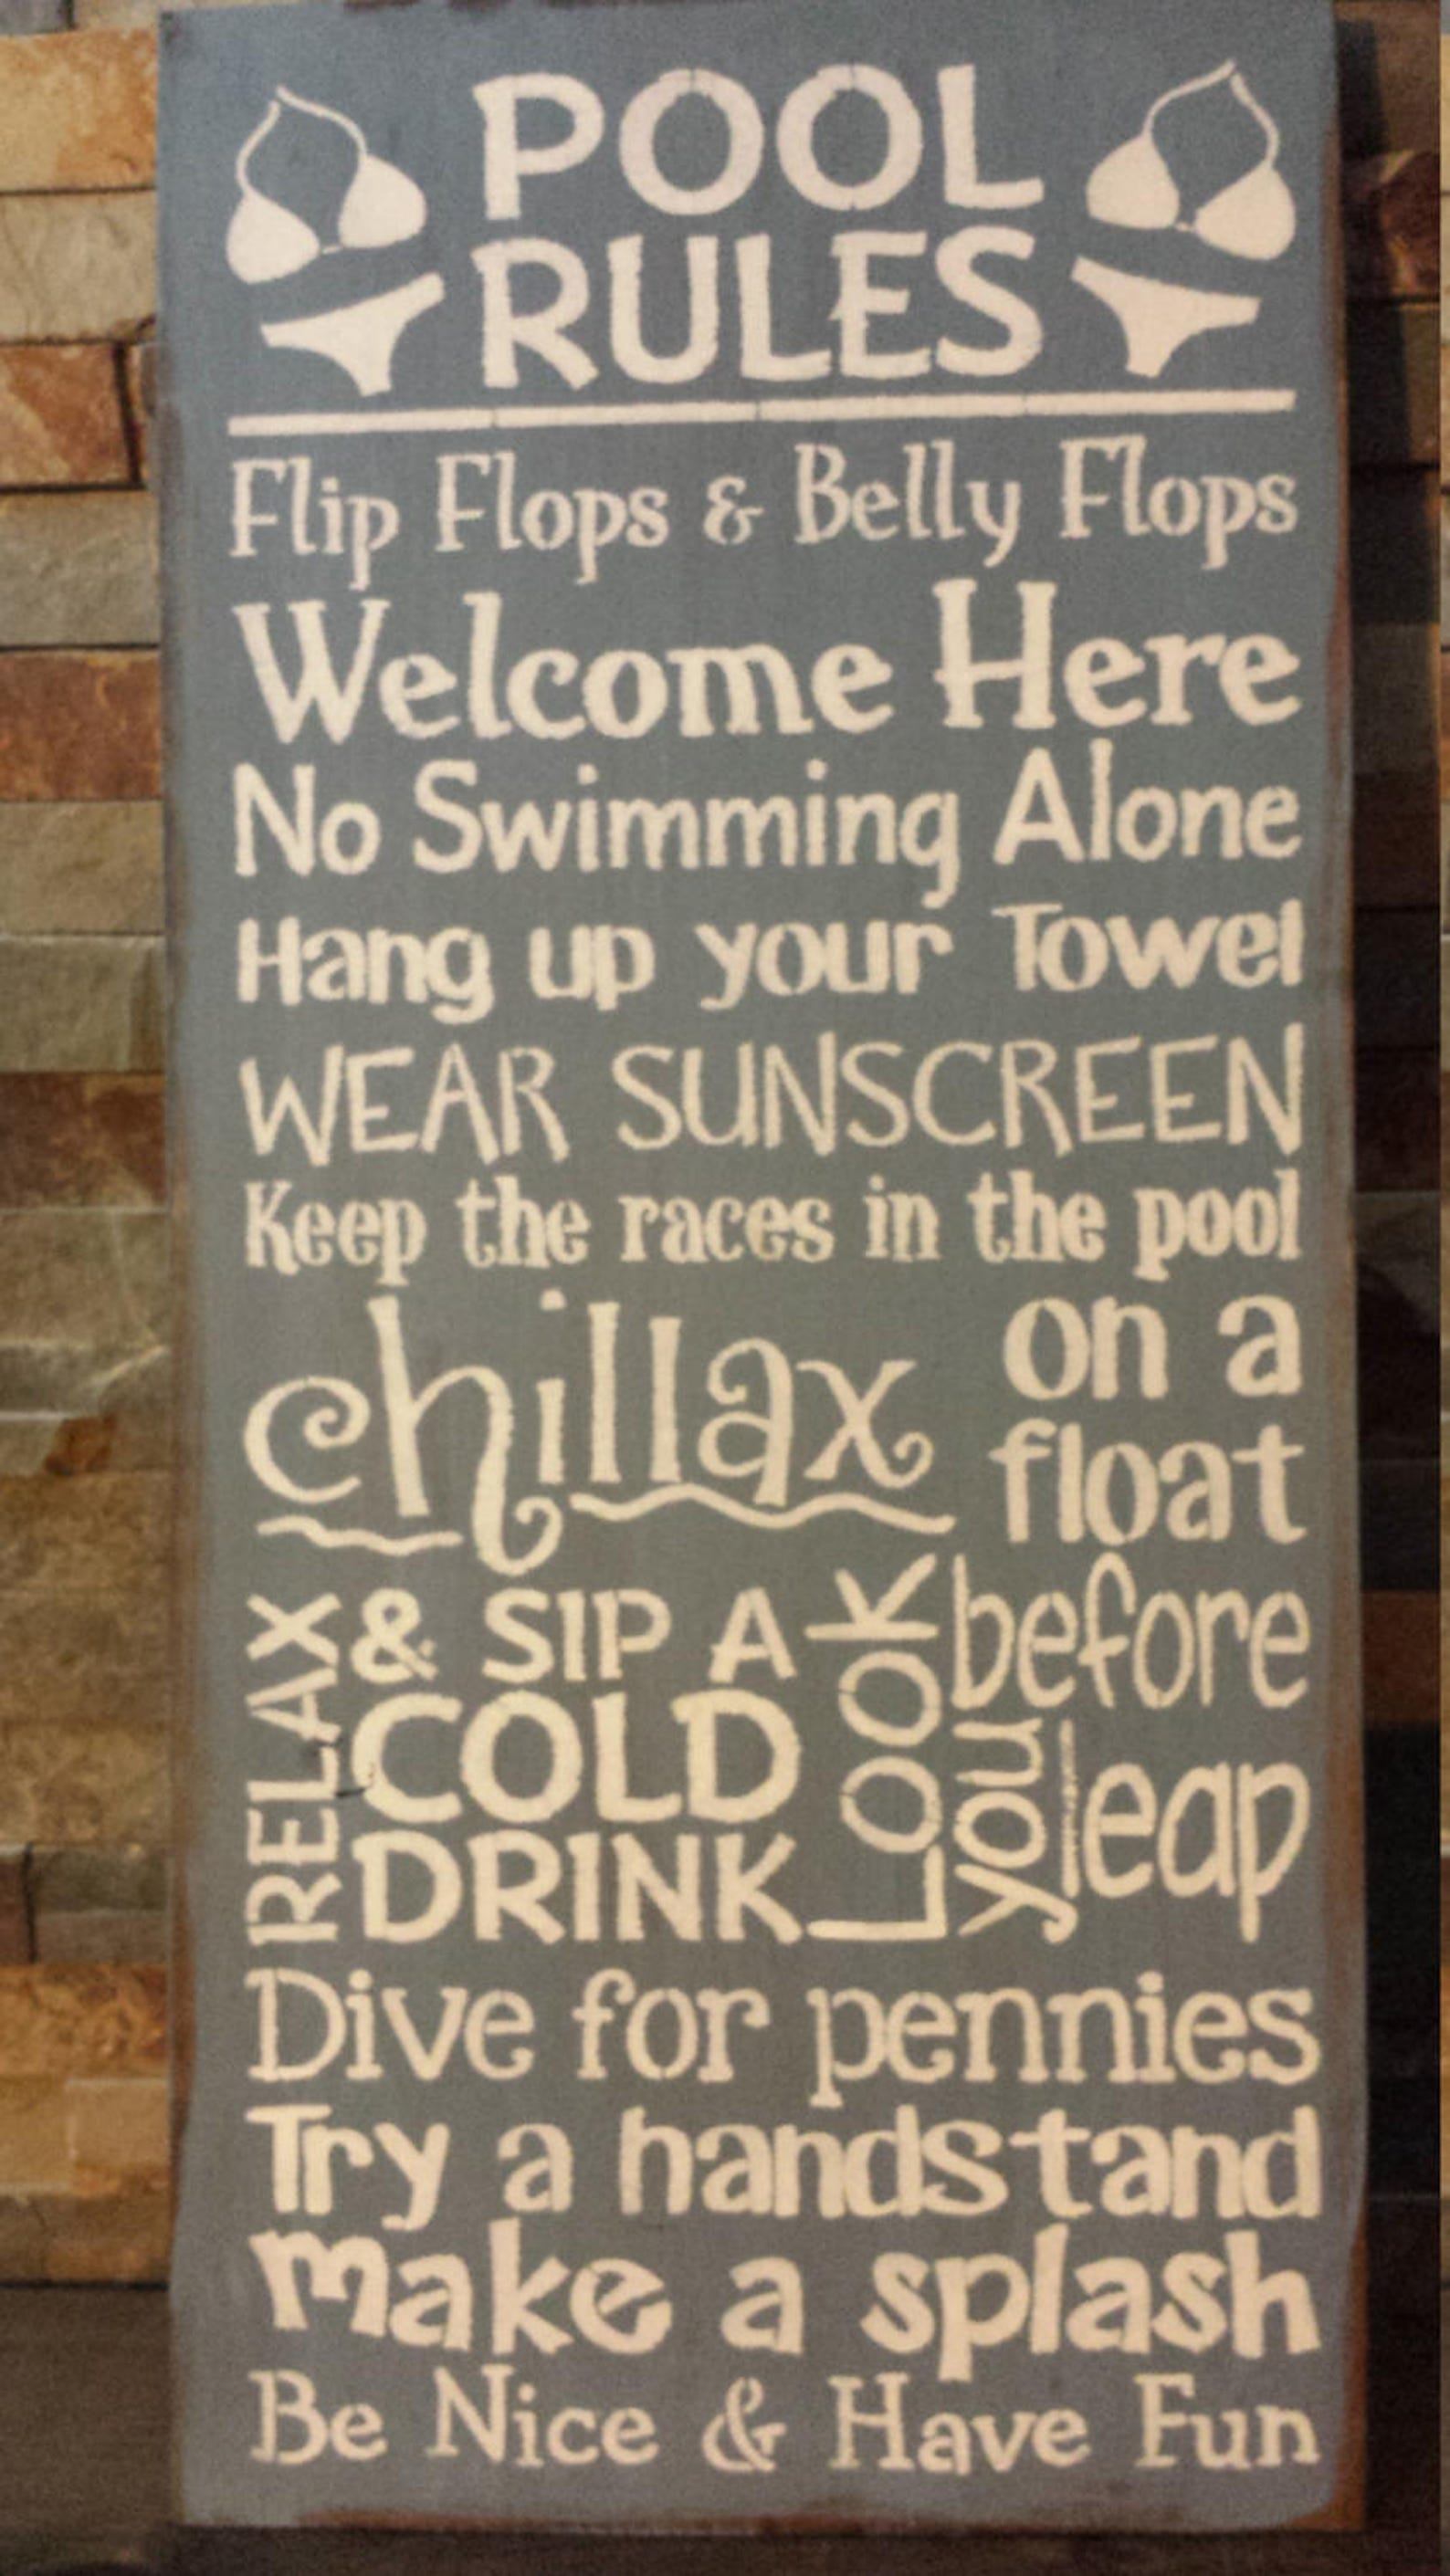 POOL
RULES
Flip Flops & Belly Flops
Welcome Here
No Swimming Alone
Hang up your Towel
WEAR SUNSCREEN
Keep the races in the pool
chillax
on a
float
RELAX
& SIP A
COLD
DRINK
LOOK
before
you
leap
Dive for pennies
Try a handstand
make a splash
Be Nice & Have Fun